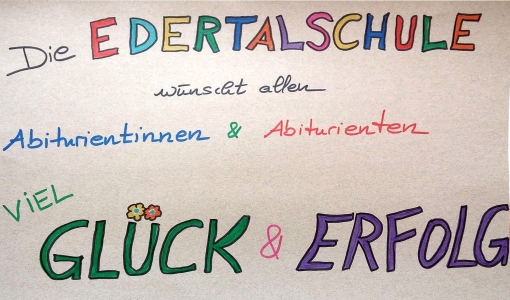 Die EDERTALSCHULE
wünscht allen
Abiturientinnen & Abiturienten
ViEL
GLÜCK & ERFOLG